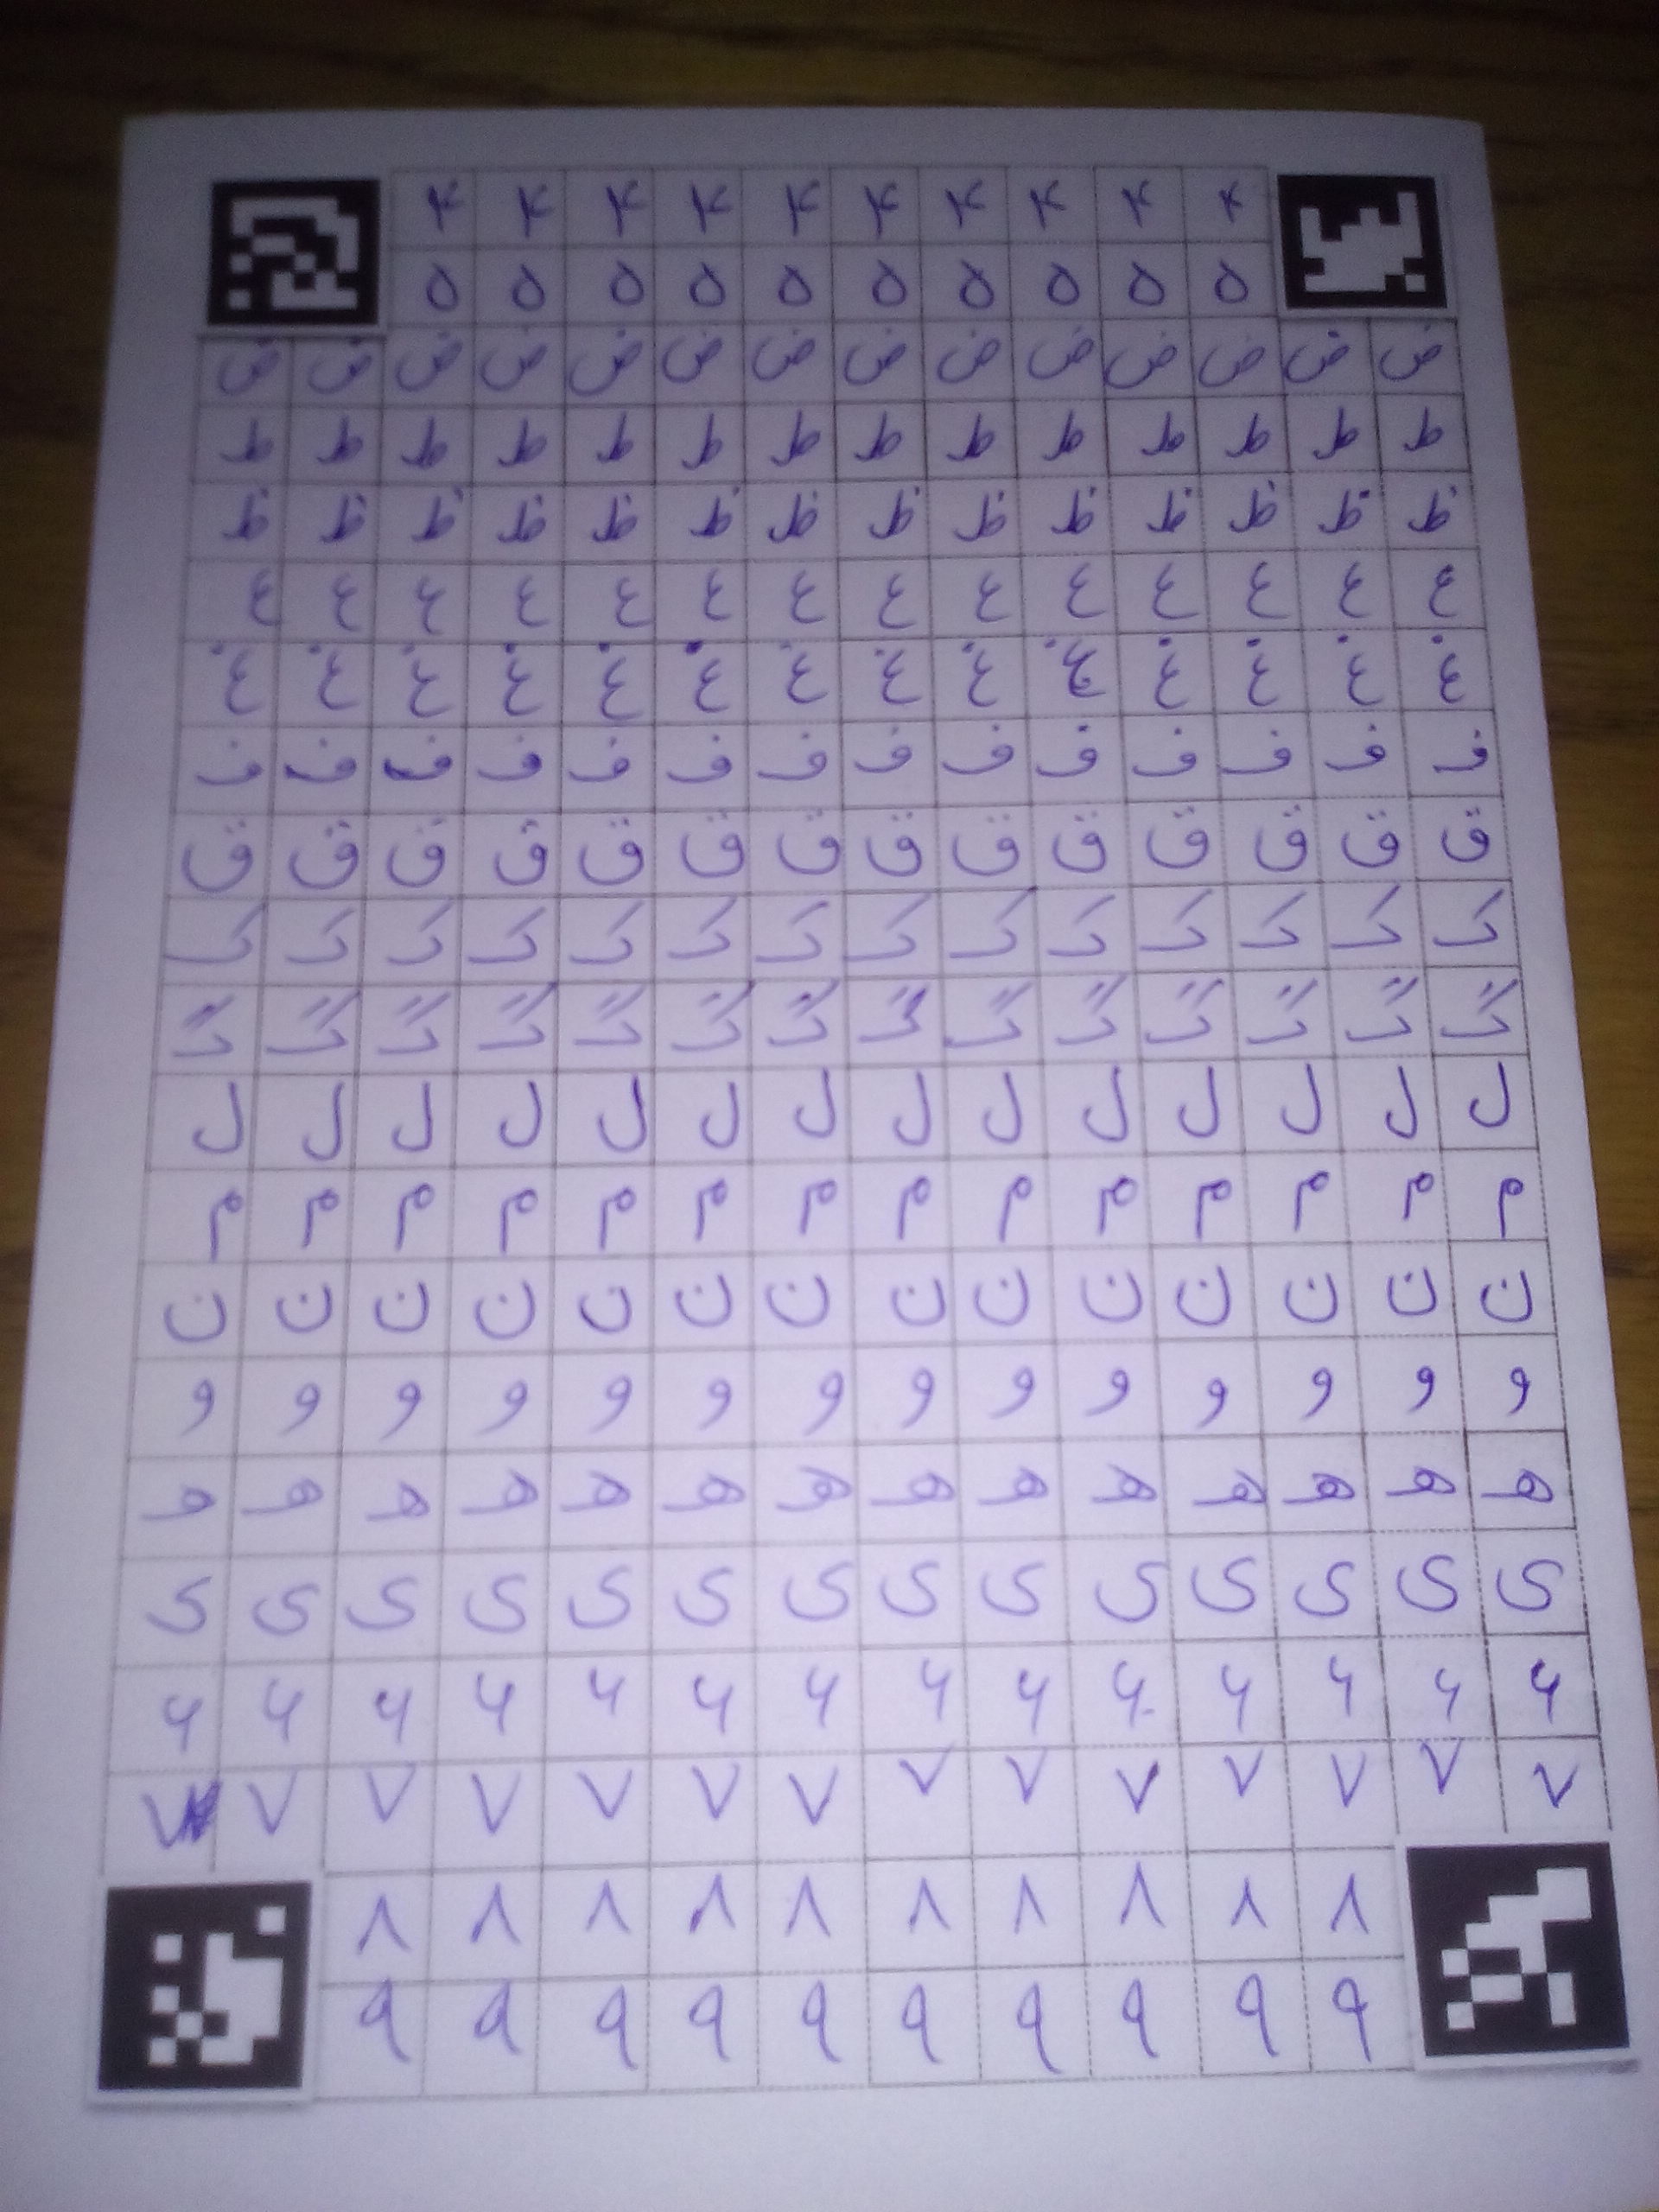 ۴ ۴ ۴ ۴ ۴ ۴ ۴ ۴ ۴ ۴
۵ ۵ ۵ ۵ ۵ ۵ ۵ ۵ ۵ ۵
ض ض ض ض ض ض ض ض ض ض ض ض ض ض
ط ط ط ط ط ط ط ط ط ط ط ط ط ط
ظ ظ ظ ظ ظ ظ ظ ظ ظ ظ ظ ظ ظ ظ
ع ع ع ع ع ع ع ع ع ع ع ع ع ع
غ غ غ غ غ غ غ غ غ غ غ غ غ غ
ف ف ف ف ف ف ف ف ف ف ف ف ف ف
ق ق ق ق ق ق ق ق ق ق ق ق ق ق
ک ک ک ک ک ک ک ک ک ک ک ک ک ک
گ گ گ گ گ گ گ گ گ گ گ گ گ گ
ل ل ل ل ل ل ل ل ل ل ل ل ل ل
م م م م م م م م م م م م م م
ن ن ن ن ن ن ن ن ن ن ن ن ن ن
و و و و و و و و و و و و و و
ه ه ه ه ه ه ه ه ه ه ه ه ه ه
ی ی ی ی ی ی ی ی ی ی ی ی ی ی
۶ ۶ ۶ ۶ ۶ ۶ ۶ ۶ ۶ ۶ ۶ ۶ ۶ ۶
۷ ۷ ۷ ۷ ۷ ۷ ۷ ۷ ۷ ۷ ۷ ۷ ۷ ۷
۸ ۸ ۸ ۸ ۸ ۸ ۸ ۸ ۸ ۸
۹ ۹ ۹ ۹ ۹ ۹ ۹ ۹ ۹ ۹